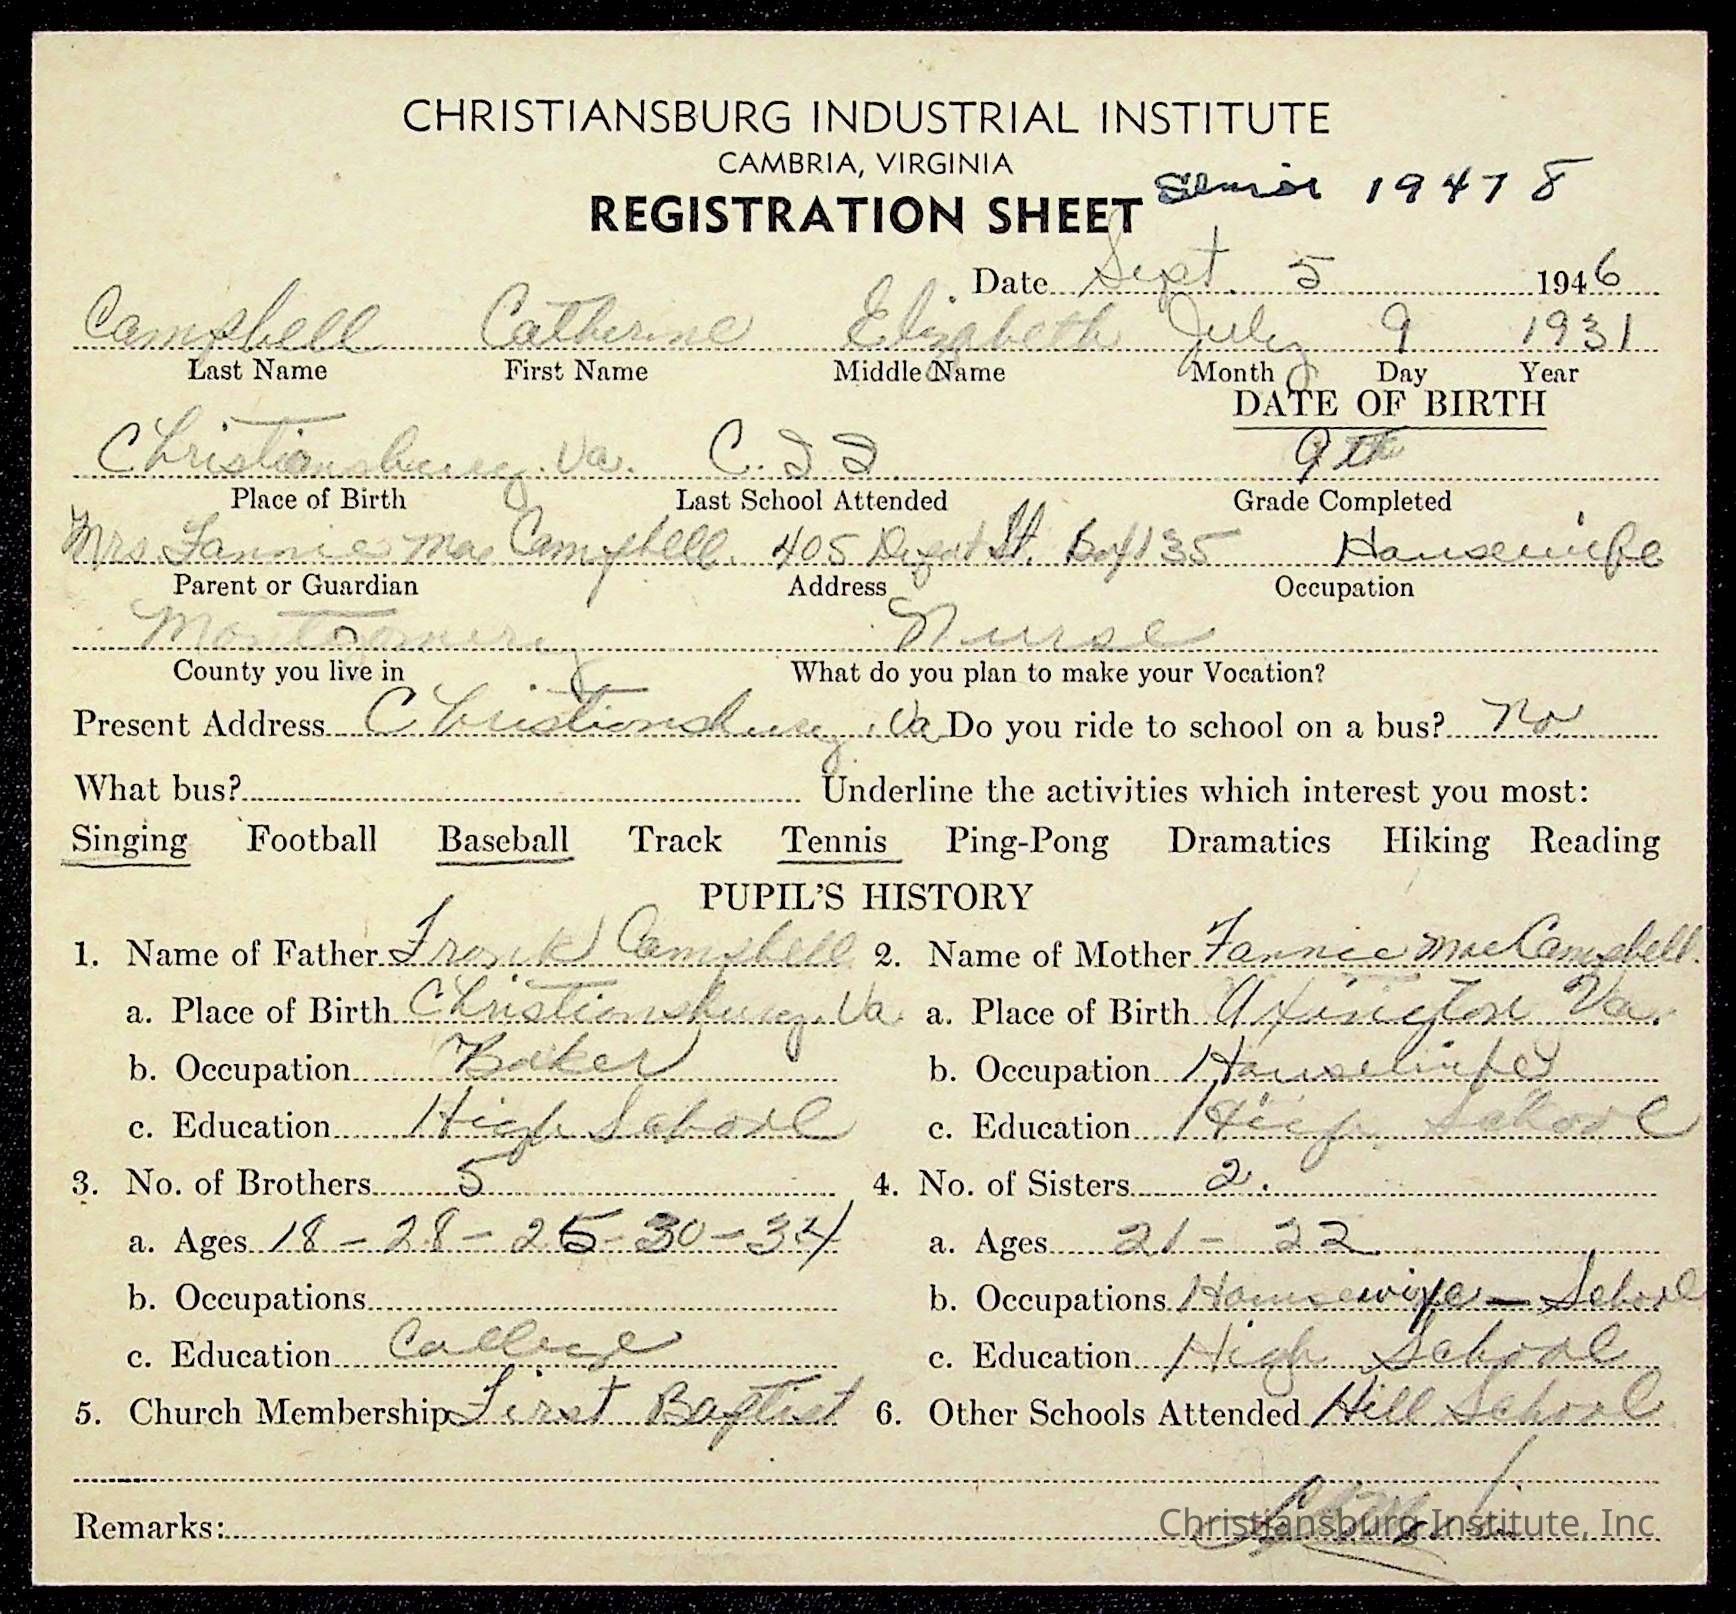 CHRISTIANSBURG INDUSTRIAL INSTITUTE
CAMBRIA, VIRGINIA
Senior 1947 8
REGISTRATION SHEET
Date Sept. 5 1946
Campbell Catherine Elizabeth July 9 1931
Last Name First Name Middle Name Month Day Year
DATE OF BIRTH
Christiansburg. Va. C. I I 9th
Place of Birth Last School Attended Grade Completed
Mrs. Fannie Mae Campbell. 405 St. Box 135 Housewife
Parent or Guardian Address Occupation
Montgomery Nurse
County you live in What do you plan to make your Vocation?
Present Address Christiansburg, Va Do you ride to school on a bus? No
What bus? Underline the activities which interest you most:
Singing Football Baseball Track Tennis Ping-Pong Dramatics Hiking Reading
PUPIL'S HISTORY
1. Name of Father Frank Campbell 2. Name of Mother Fannie Mae Campbell.
a. Place of Birth Christiansburg, Va a. Place of Birth Axington Va.
b. Occupation Baker b. Occupation Housewife
c. Education High School c. Education High School
3. No. of Brothers 5 4. No. of Sisters 2.
a. Ages 18 - 28 - 25 - 30 - 34 a. Ages 21 - 22
b. Occupations b. Occupations Housewife - School
c. Education College c. Education High School
5. Church Membership First Baptist 6. Other Schools Attended Hill School
Remarks:
Christiansburg Institute, Inc